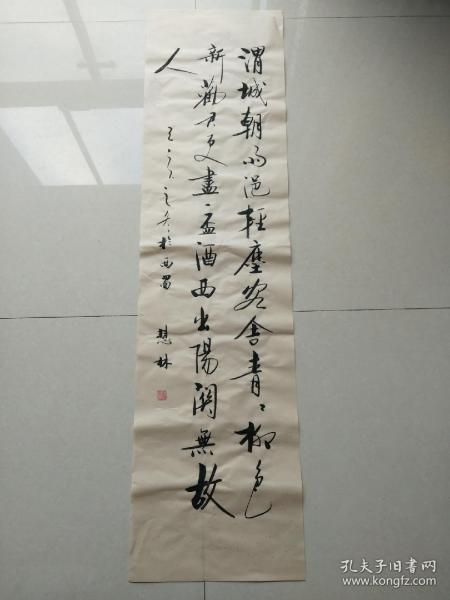 渭城朝雨浥輕塵客舍青〻柳色
新勸君更盡一盃酒西出陽関無故
人
於西蜀 慧林
孔夫子旧书网
www.kongfz.com